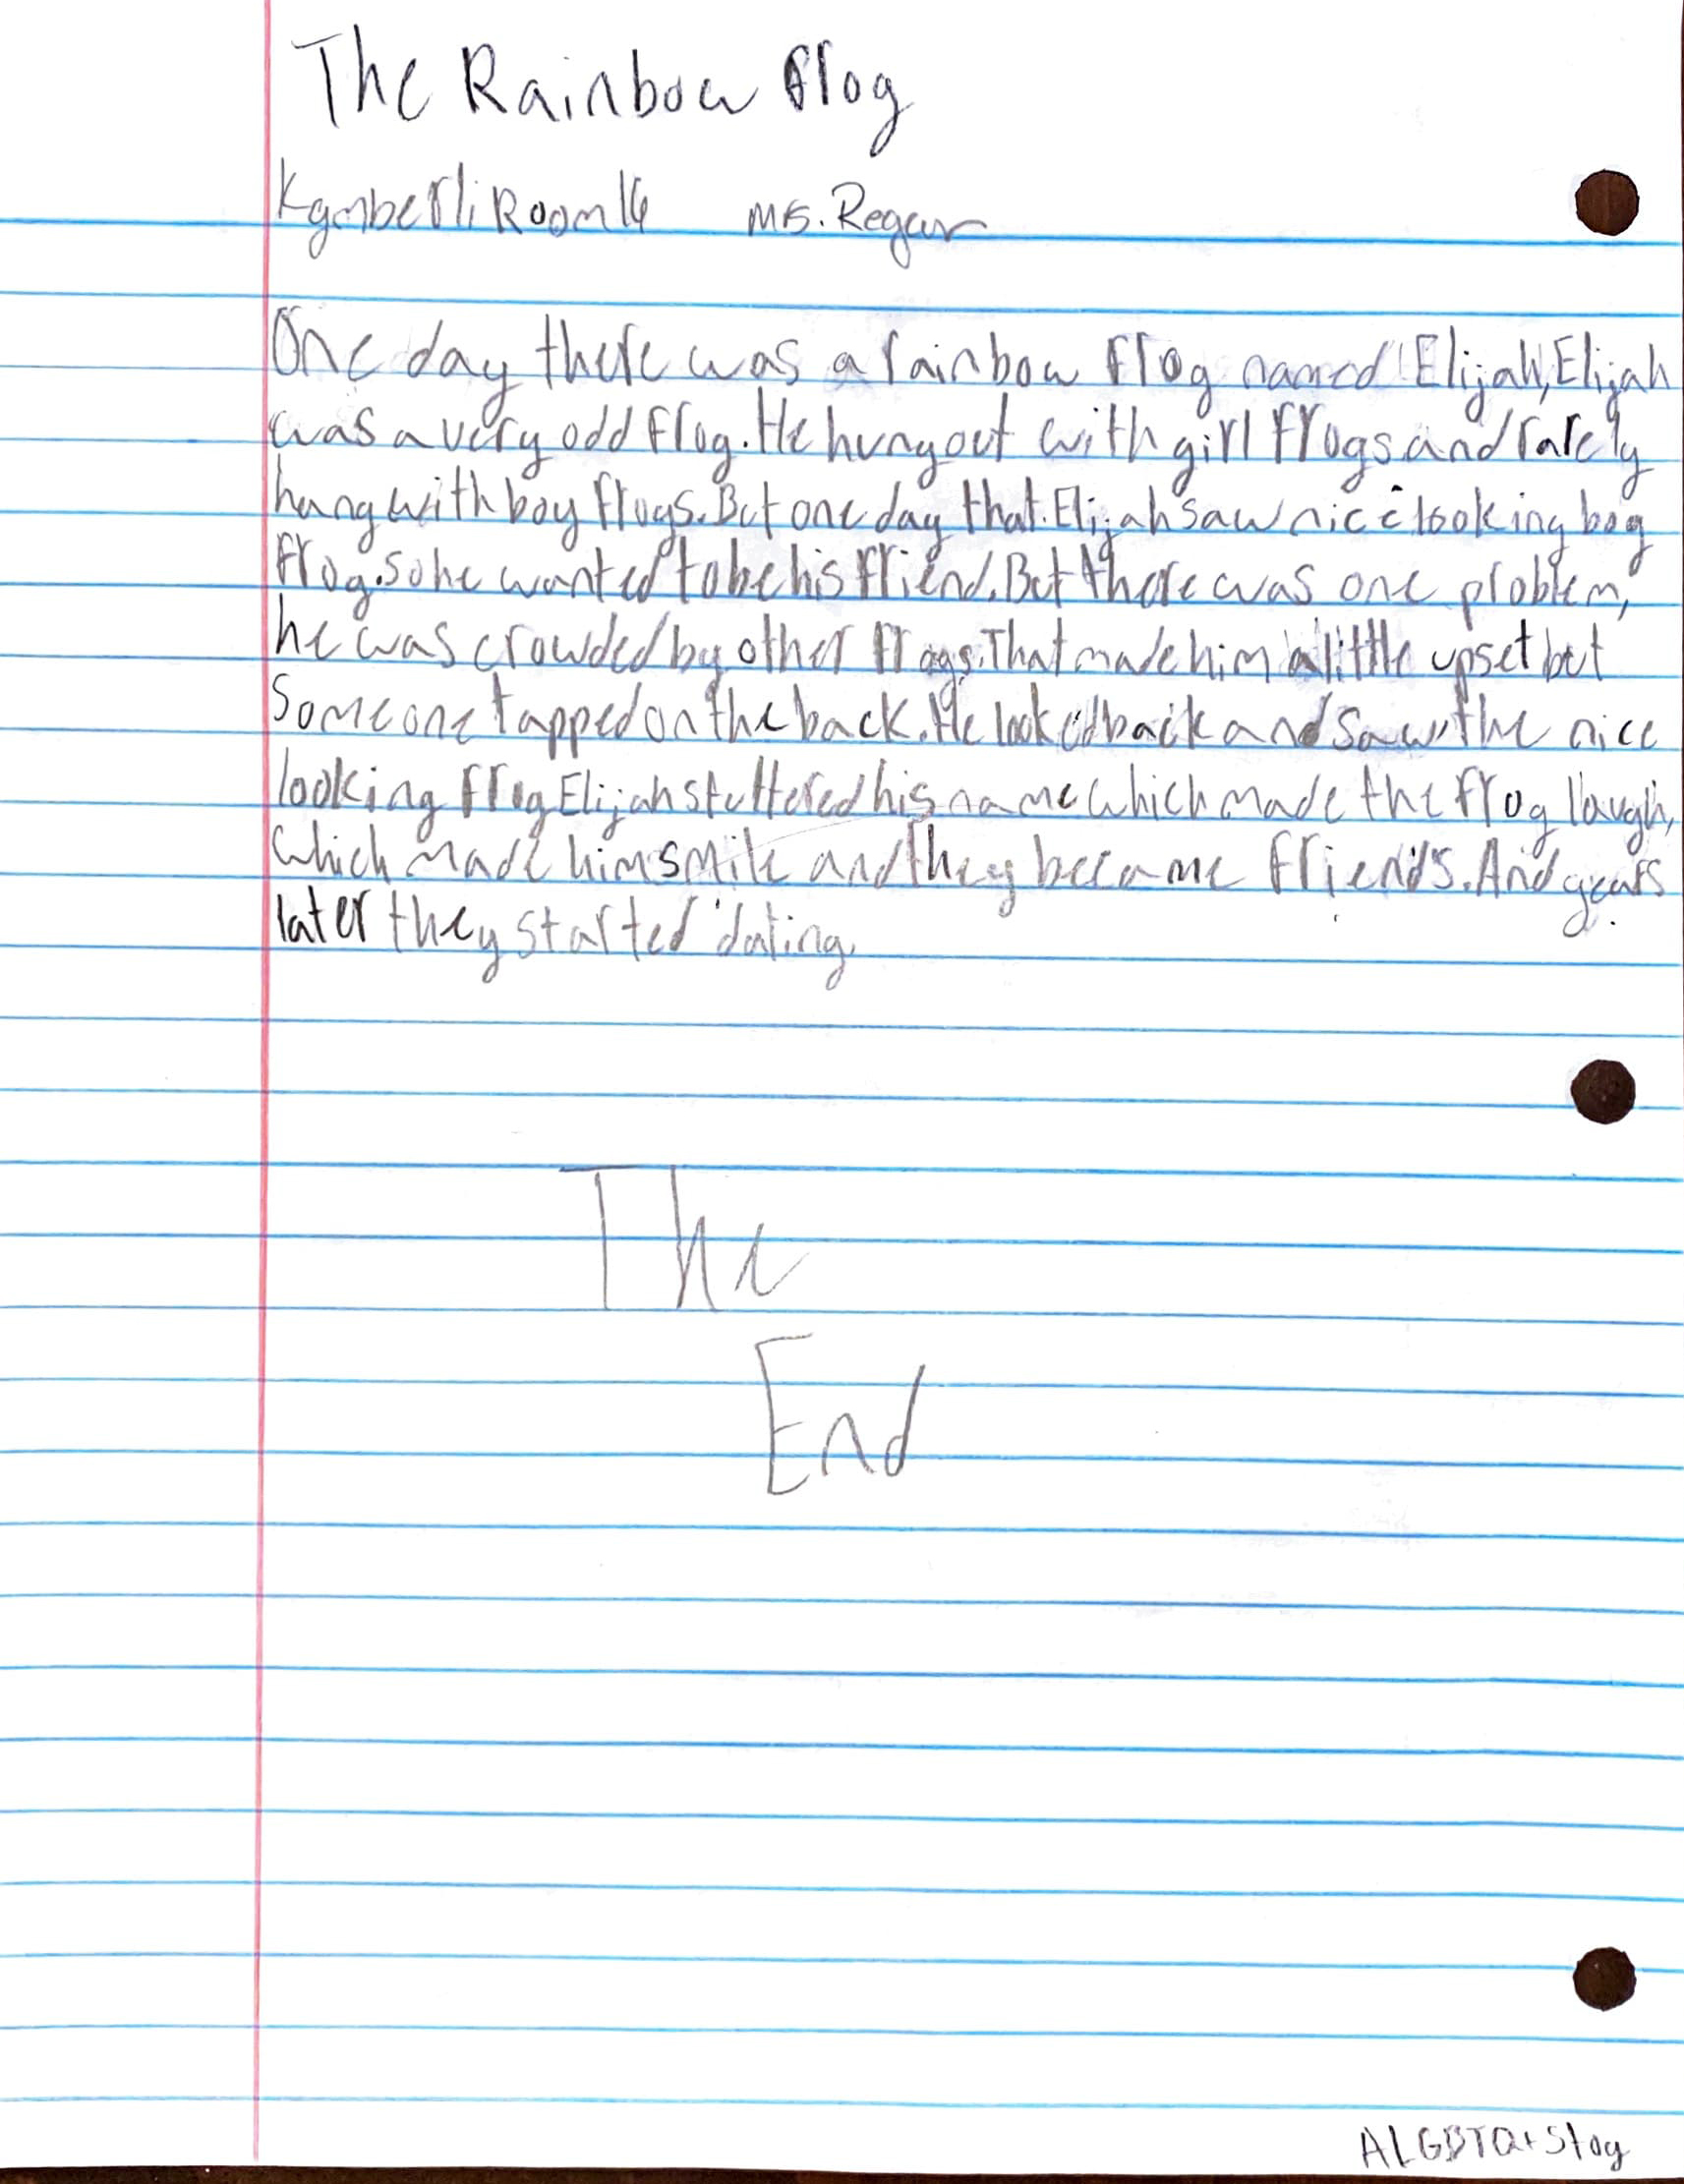 The Rainbow frog
Kymberli Room 16 Ms. Regan
One day there was a rainbow frog named Elijah, Elijah
was a very odd frog. He hung out with girl frogs and rarely
hang with boy frogs. But one day that. Elijah saw nice looking boy
frog. So he wanted to be his friend. But there was one problem,
he was crowded by other frogs. That made him a little upset but
Someone tapped on the back. He looked back and saw the nice
looking frog Elijah stuttered his name which made the frog laugh,
which made him smile and they became friends. And years
later they started dating.
The
End
A LGBTQ+ Stoy